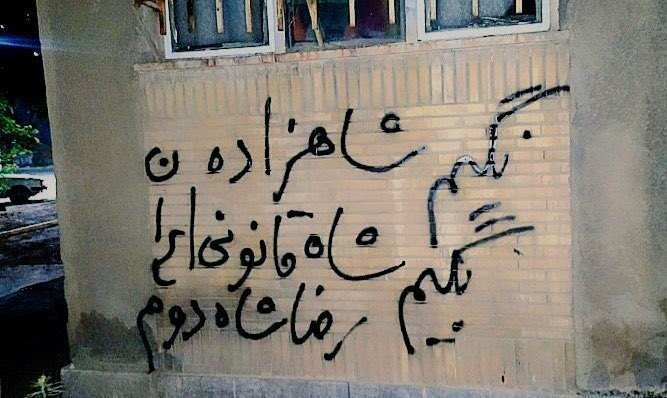 نگیم شاهزاده
بگیم شاه قانونی ایران
رضا شاه دوم